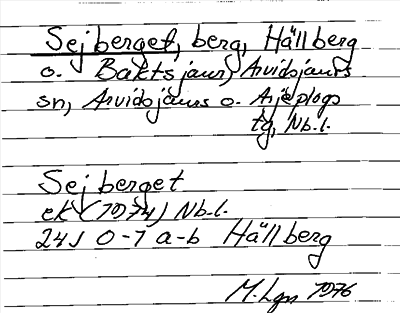 Sejberget, berg, Hällberg
o. Baktsjaur, Arvidsjaurs
sn, Arvidsjaurs o. Arjeplogs
tg, Nb.l.
Sejberget
ek (1974) Nb.l.
24J 0-1 a-b Hällberg
M.Lgn 1976